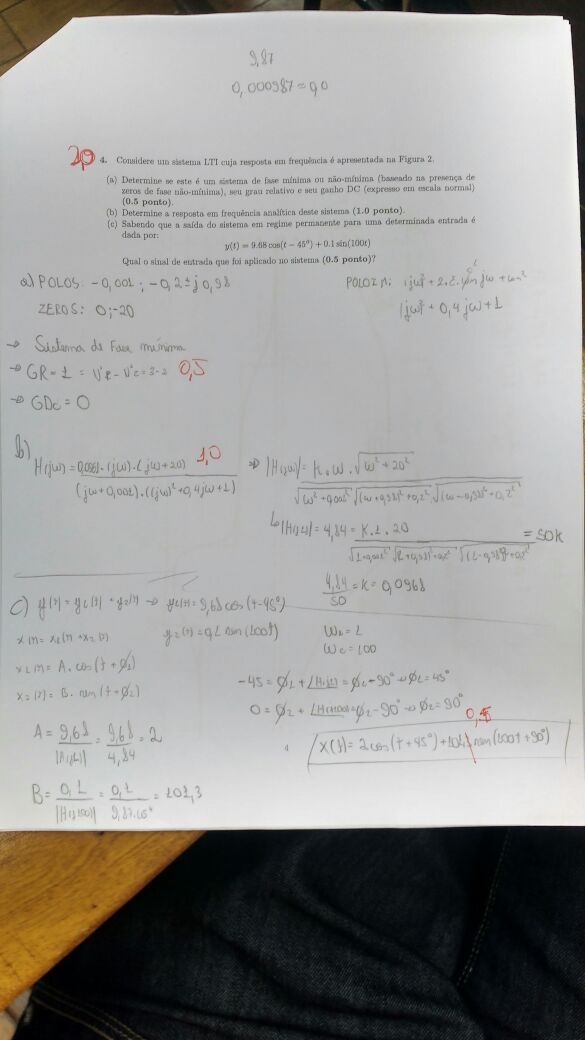 9,87
0,000987 = 90
2,0
4. Considere um sistema LTI cuja resposta em frequência é apresentada na Figura 2.
(a) Determine se este é um sistema de fase mínima ou não-mínima (baseado na presença de
zeros de fase não-mínima), seu grau relativo e seu ganho DC (expresso em escala normal)
(0.5 ponto).
(b) Determine a resposta em frequência analítica deste sistema (1.0 ponto).
(c) Sabendo que a saída do sistema em regime permanente para uma determinada entrada é
dada por:
y(t) = 9.68 cos(t − 45°) + 0.1 sin(100t)
Qual o sinal de entrada que foi aplicado no sistema (0.5 ponto)?
a) POLOS: -0,001 ; -0,2 ± j 0,98
ZEROS: 0 ; -20
(jω)² + 0,4 jω + 1
→ Sistema de Fase mínima
→ GR = 1 = Nº P - Nº Z = 3 - 2 0,5
→ GDC = 0
b) 1,0
H(jω) = 0,0968 · (jω) · (jω + 20)
(jω + 0,001) · ((jω)² + 0,4jω + 1)
→ |H(jω)| = K · ω · √ω² + 20²
√ω² + 0,001² √(ω + 0,98)² + 0,2² √(ω - 0,98)² + 0,2²
↳ |H(j1)| = 4,84 = K · 1 · 20 = 50K
√1 + 0,001² √(1 + 0,98)² + 0,2² √(1 - 0,98)² + 0,2²
4,84 / 50 = K = 0,0968
c) y(t) = y1(t) + y2(t) → y1(t) = 9,68 cos(t - 45°)
x(t) = x1(t) + x2(t) y2(t) = 0,1 sen(100t) ω1 = 1
ω2 = 100
x1(t) = A · cos(t + φ1)
x2(t) = B · sen(t + φ2)
-45 = φ1 + ∠H(j1) = φ1 - 90° → φ1 = 45°
0 = φ2 + ∠H(j100) = φ2 - 90° → φ2 = 90°
A = 9,68 / |H(j1)| = 9,68 / 4,84 = 2
x(t) = 2 cos(t + 45°) + 101,3 sen(100t + 90°)
B = 0,1 / |H(j100)| = 0,1 / 9,87.10⁻⁴ = 101,3